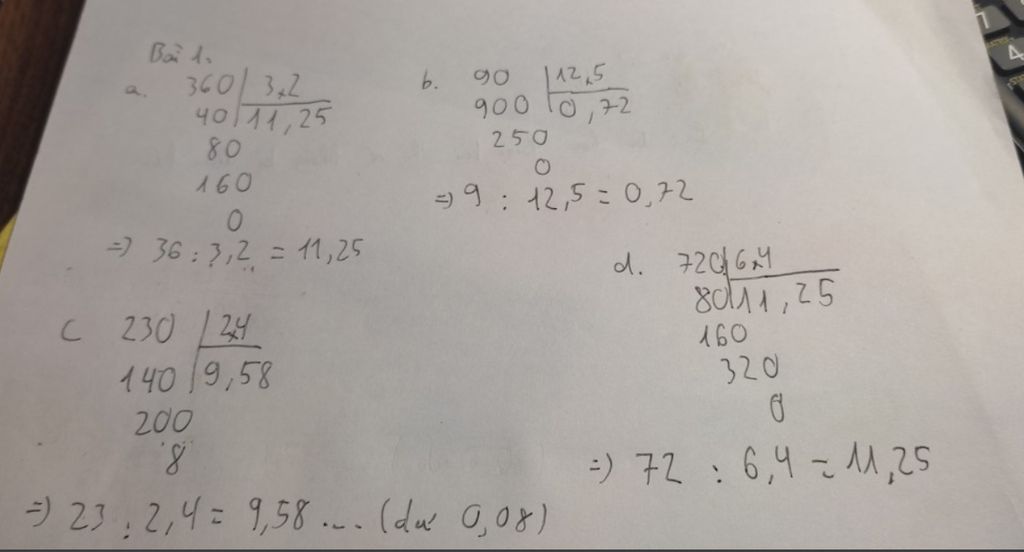 Bài 1.
a. 360 3,2
40 11,25
80
160
0
=> 36 : 3,2 = 11,25
b. 90 12,5
900 0,72
250
0
=> 9 : 12,5 = 0,72
c 230 2,4
140 9,58
200
8
=> 23 : 2,4 = 9,58 ... (dư 0,08)
d. 720 6,4
80 11,25
160
320
0
=> 72 : 6,4 = 11,25